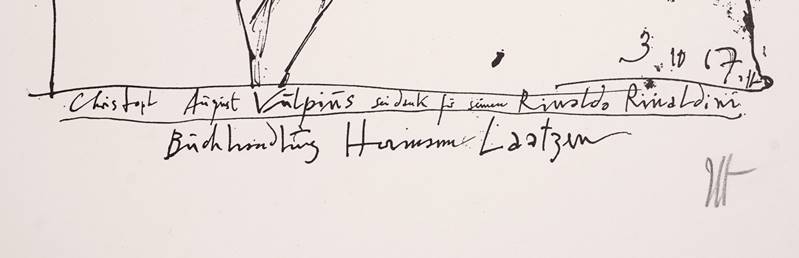 3.10 67
Christoph August Vulpius sei dank für seinen Rinaldo Rinaldini
Buchhandlung Hermann Laatzen